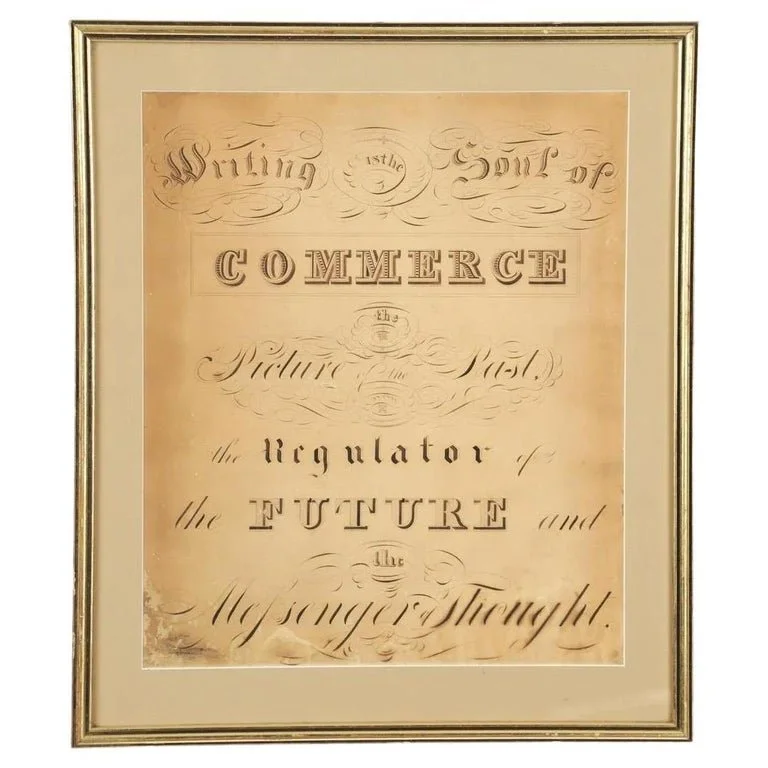 Writing is the Soul of
COMMERCE
the
Picture of the Past,
the Regulator of
the FUTURE and
the
Messenger of Thought.